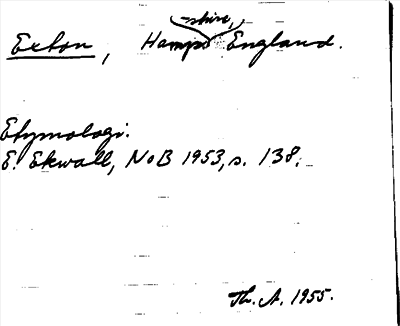 Exton, Hampshire, England.
Etymologi:
E. Ekwall, NoB 1953, s. 138.
Th. A. 1955.